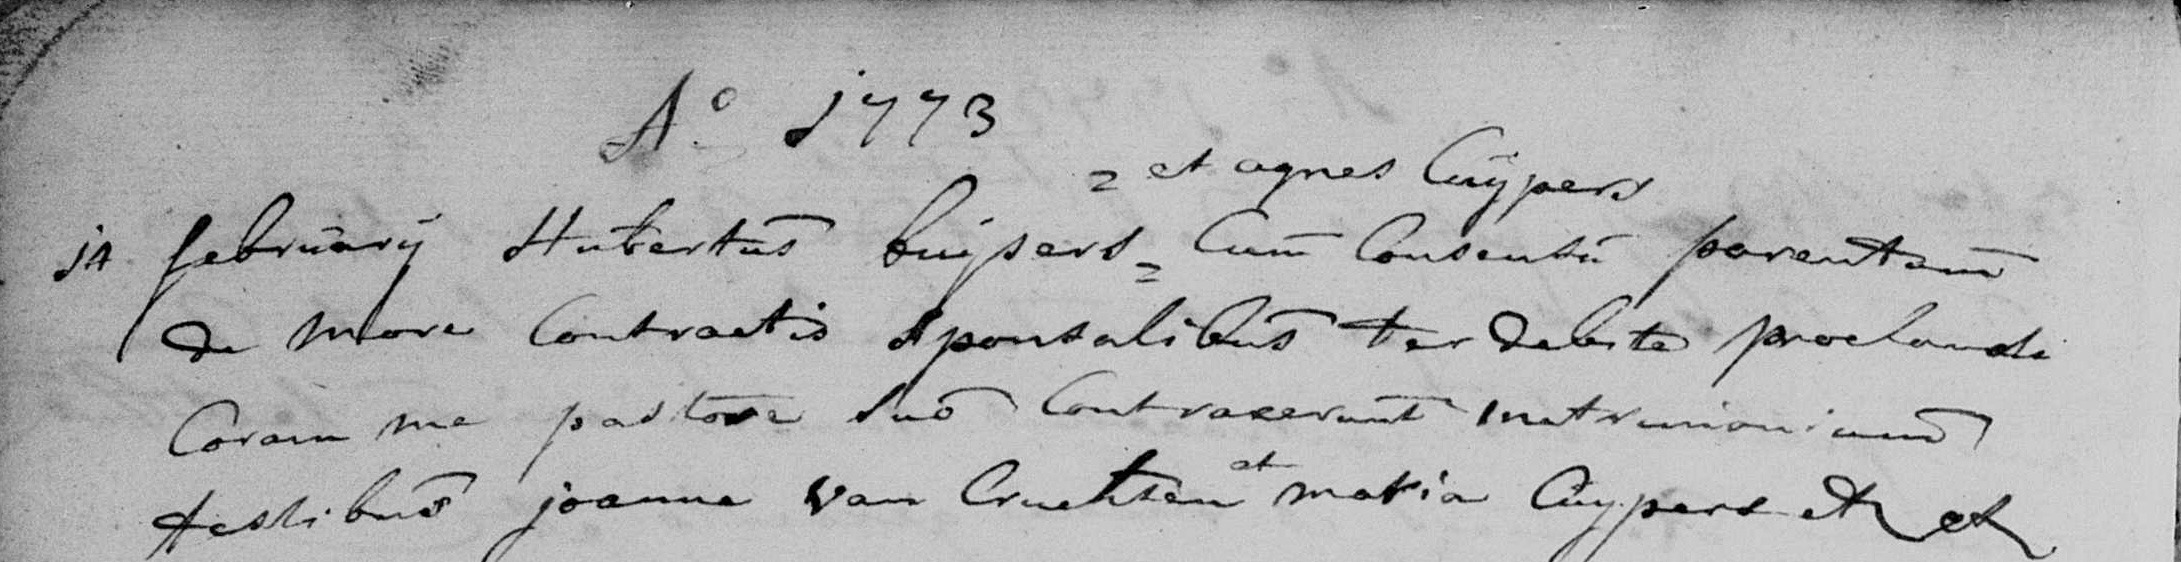 A° 1773
= et agnes Cuÿpers
14 februarÿ Hubertus Cuÿpers = Cum Consensu parentum
de more Contractis Sponsalibus ter debite proclamati
Coram me pastore suo Contraxerunt matrimonium
testibus joanne van Cruchten et maria Cuÿpers et et